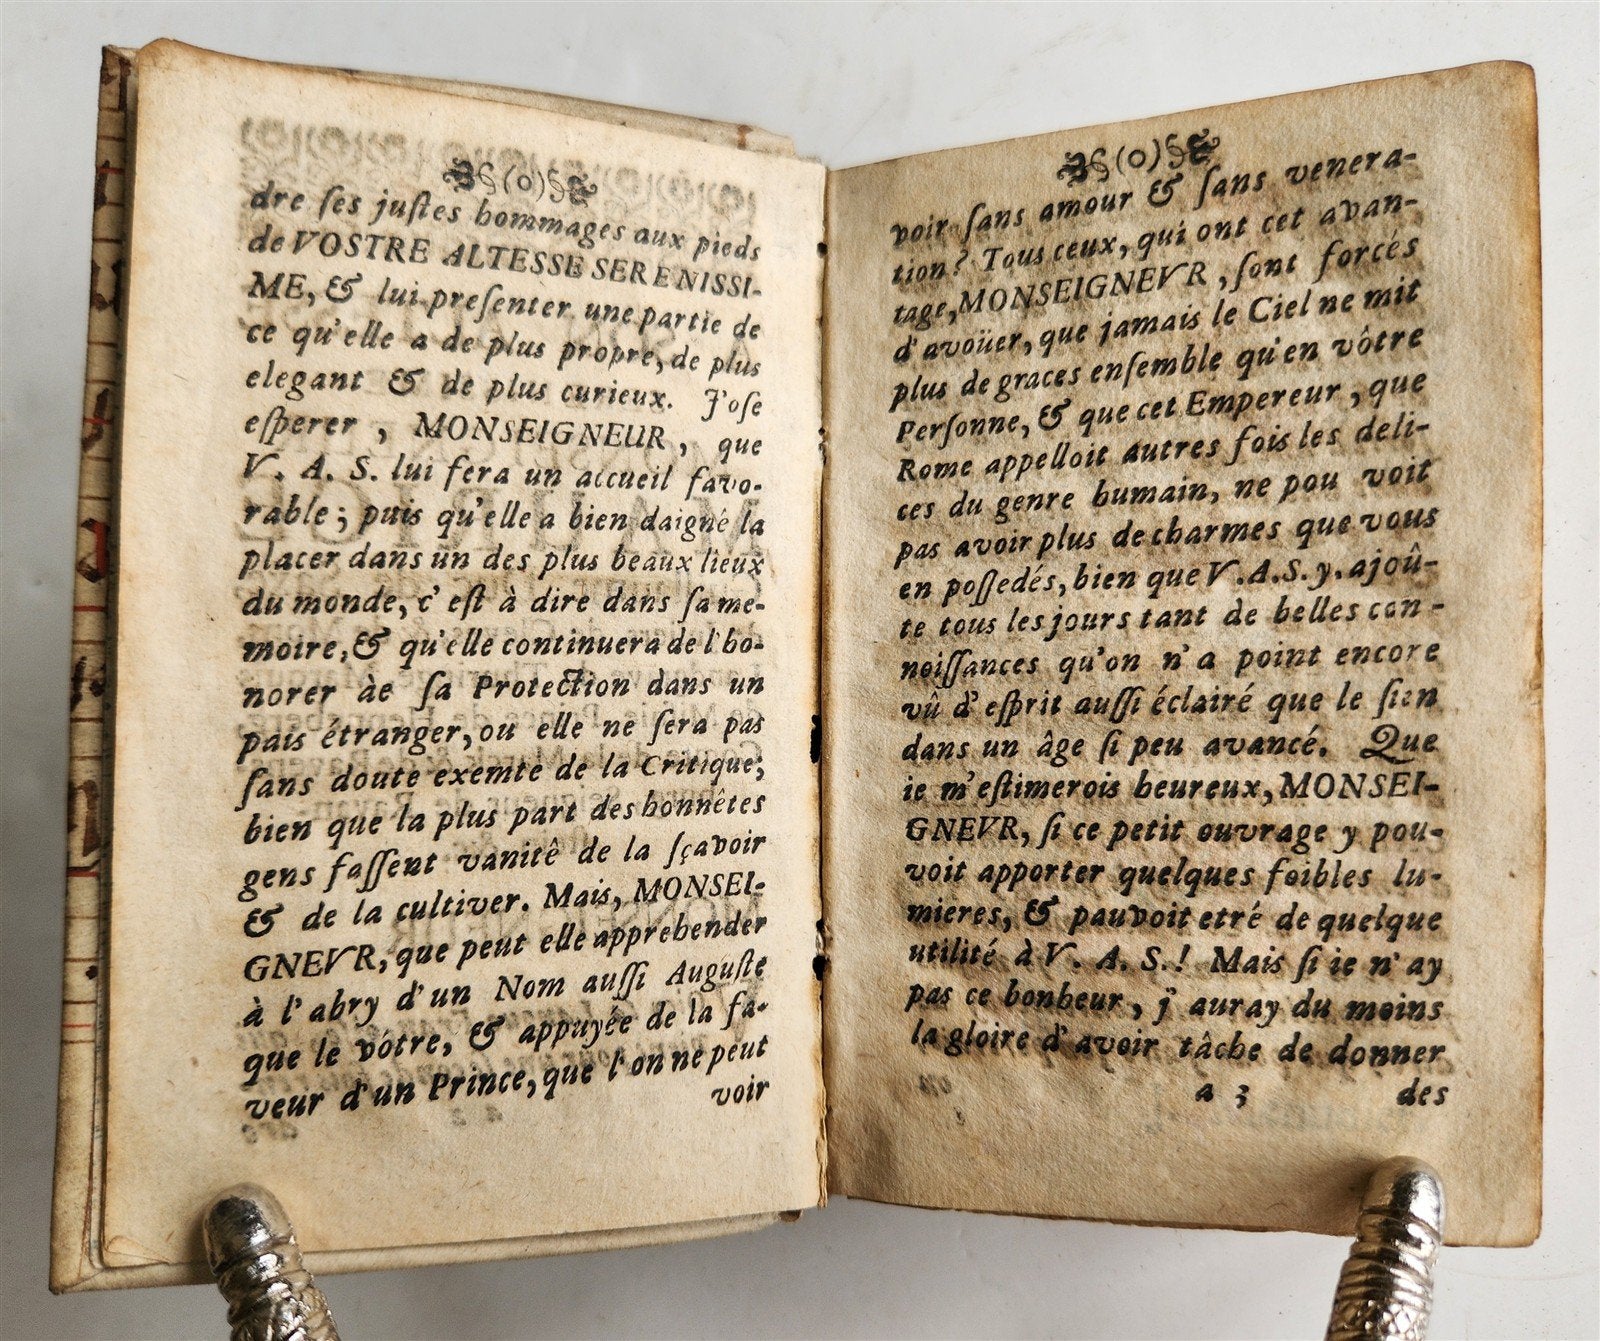 (o)
dre ſes juſtes hommages aux pieds
de VOSTRE ALTESSE SERENISSI-
ME, & lui preſenter une partie de
ce qu'elle a de plus propre, de plus
elegant & de plus curieux. J'oſe
eſperer, MONSEIGNEUR, que
V. A. S. lui fera un accueil favo-
rable; puis qu'elle a bien daigné la
placer dans un des plus beaux lieux
du monde, c'eſt à dire dans ſa me-
moire, & qu'elle continuera de l'ho-
norer de ſa Protection dans un
pais étranger, ou elle ne ſera pas
ſans doute exemte de la Critique;
bien que la plus part des honnêtes
gens faſſent vanitê de la ſçavoir
& de la cultiver. Mais, MONSEI-
GNEVR, que peut elle apprehender
à l'abry d'un Nom auſſi Auguſte
que le vótre, & appuyée de la fa-
veur d'un Prince, que l'on ne peut
voir
(o)
voir ſans amour & ſans venera-
tion? Tous ceux, qui ont cet avan-
tage, MONSEIGNEVR, ſont forcés
d'avoüer, que jamais le Ciel ne mit
plus de graces enſemble qu'en vôtre
Perſonne, & que cet Empereur, que
Rome appelloit autres fois les deli-
ces du genre humain, ne pou voit
pas avoir plus de charmes que vous
en poſſedés, bien que V. A. S. y. ajoû-
te tous les jours tant de belles con-
noiſſances qu'on n'a point encore
vû d'eſprit auſſi éclairé que le ſien
dans un âge ſi peu avancé. Que
ie m'eſtimerois heureux, MONSEI-
GNEVR, ſi ce petit ouvrage y pou-
voit apporter quelques foibles lu-
mieres, & pauvoit etré de quelque
utilité à V. A. S.! Mais ſi ie n'ay
pas ce bonheur, j'auray du moins
la gloire d'avoir tâche de donner
a 3 des